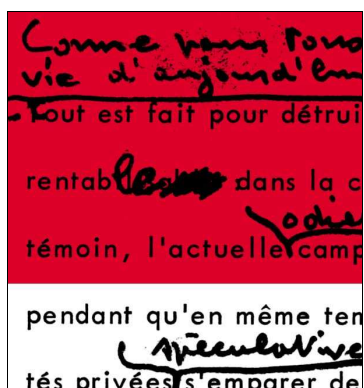 Comme nous
vie d'aujourd'hui
Tout est fait pour détrui
rentab dans la c
odie
témoin, l'actuelle camp
pendant qu'en même ten
spéculative
tés privées s'emparer de